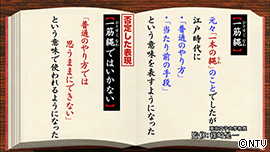 【一筋縄】
元々一本の縄のことでしたが
江戸時代に
「普通のやり方」
「当たり前の手段」
という意味を表すようになった
否定した表現
【一筋縄ではいかない】
「普通のやり方では
思うままにできない」
という意味で使われるようになった
©NTV